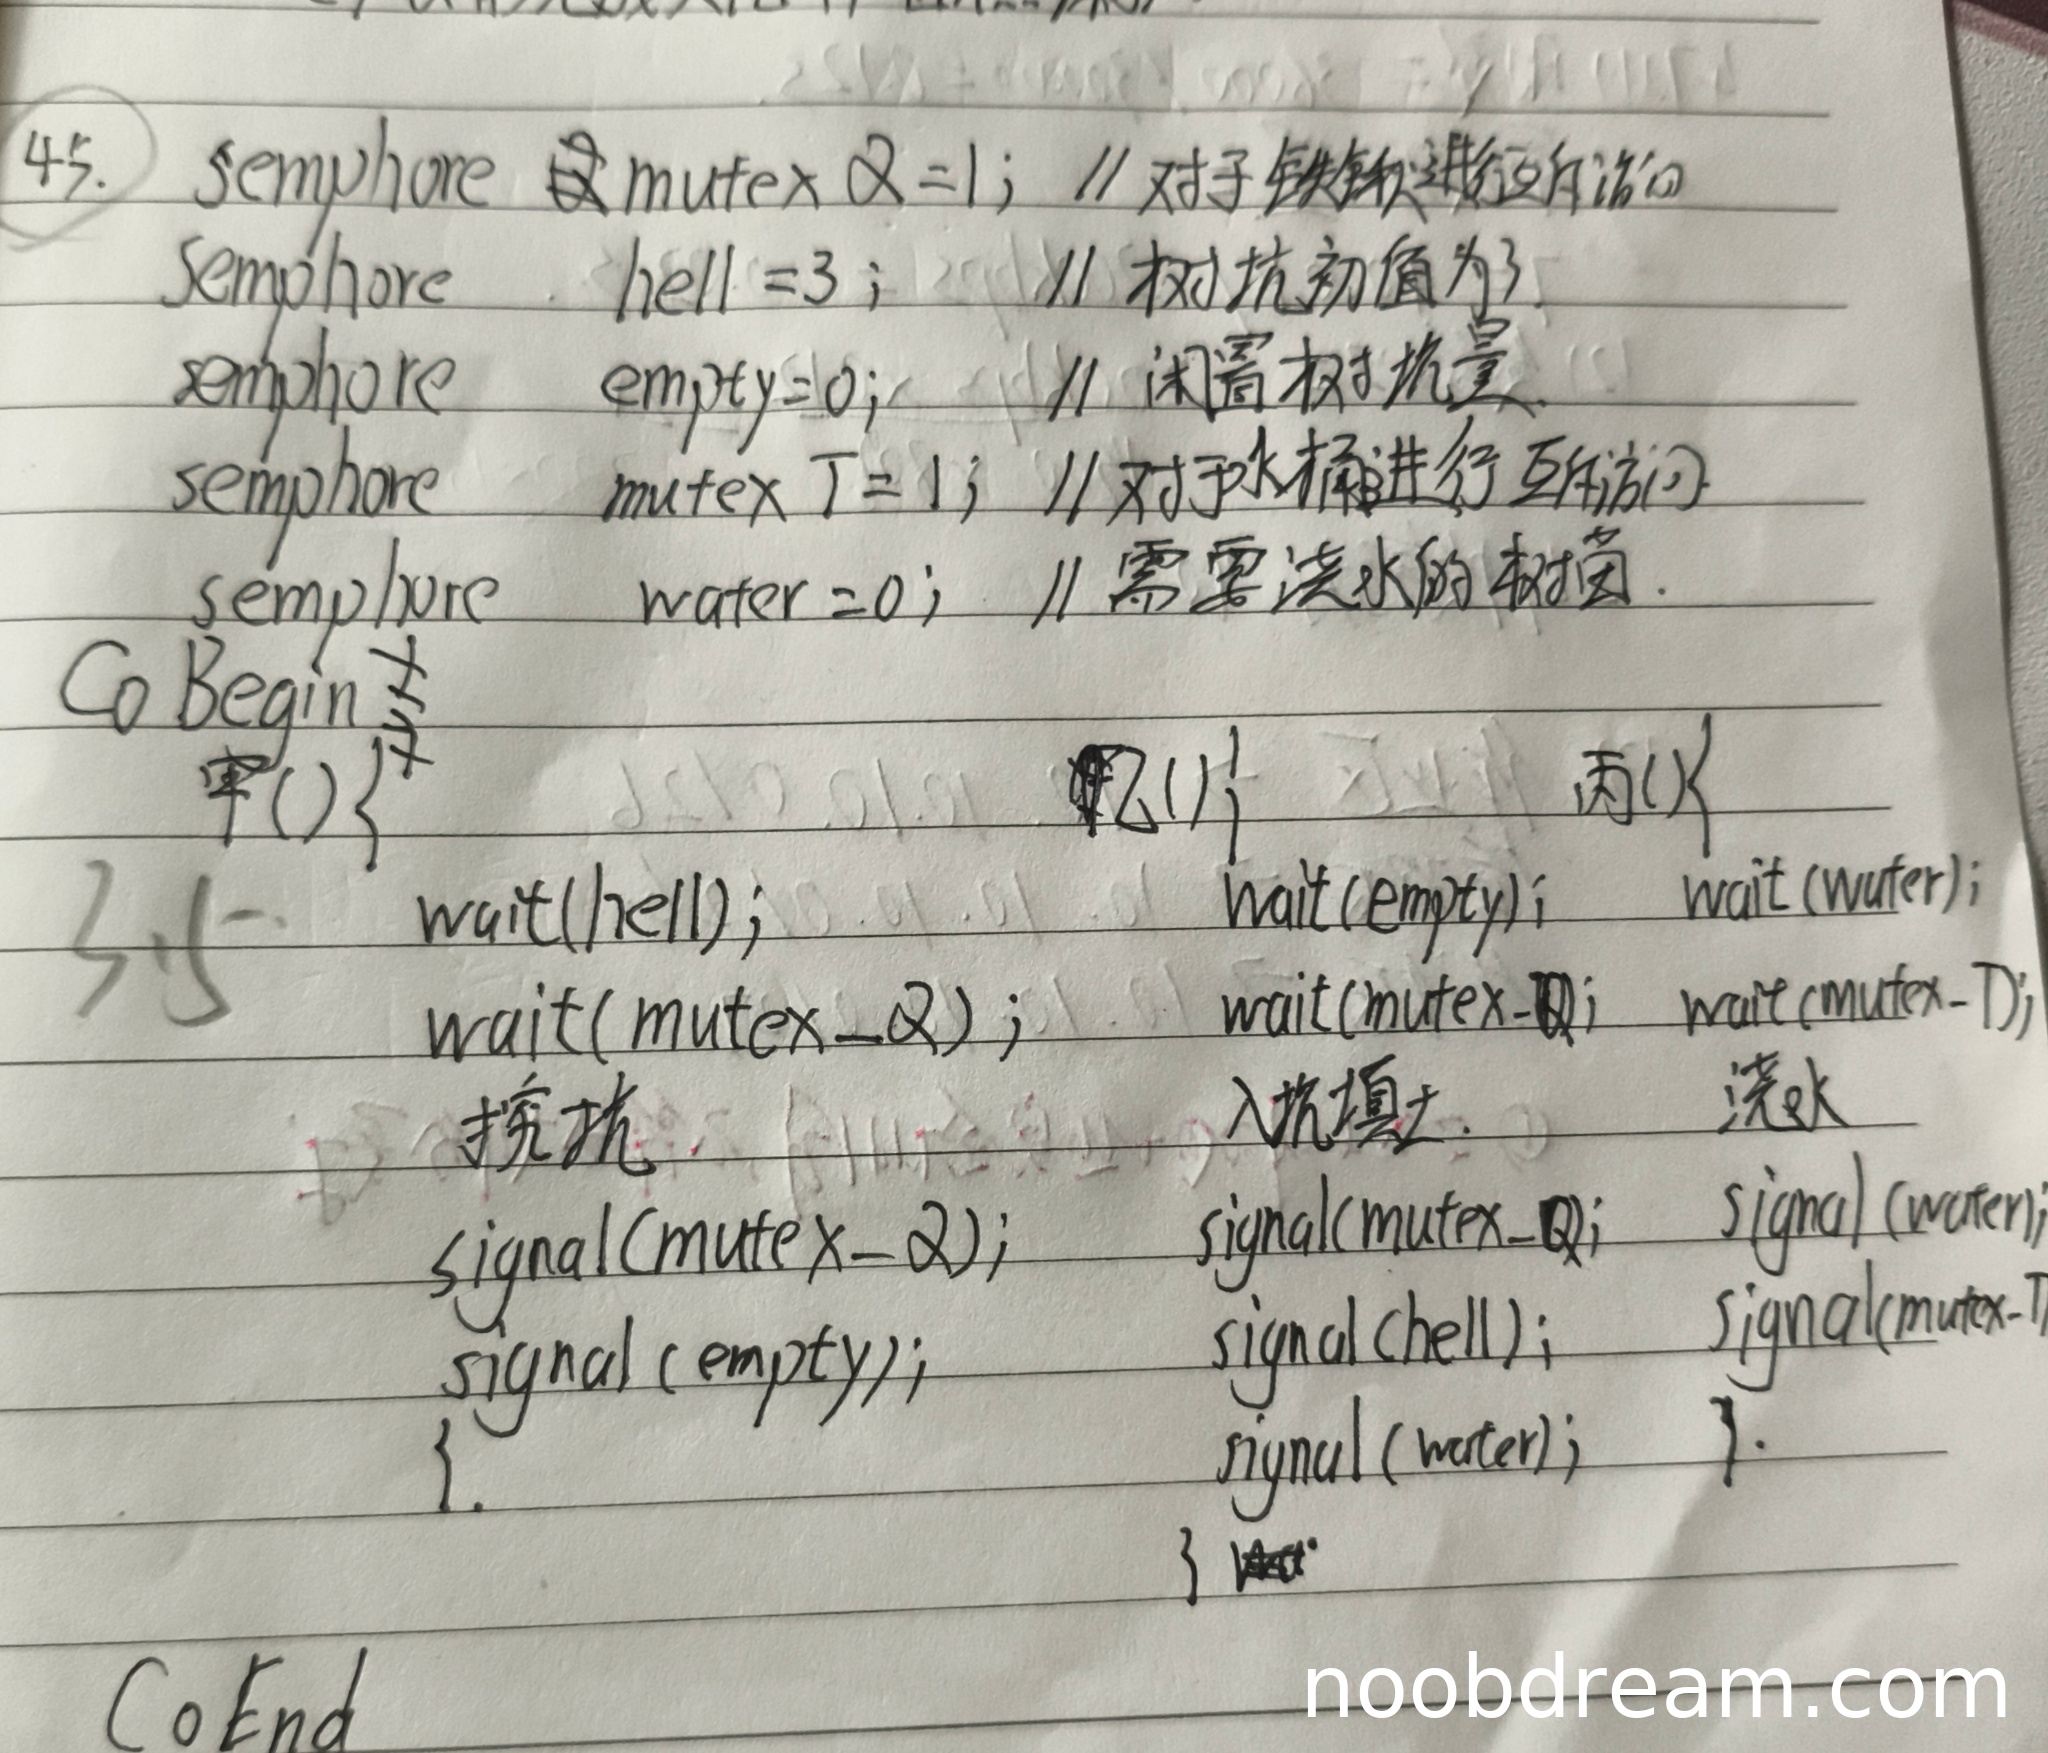 45. semphore mutex Q=1; // 对于铁锹进行互斥访问
semphore hell=3; // 树坑初值为3.
semphore empty=0; // 闲置树坑量.
semphore mutex T=1; // 对于水桶进行互斥访问
semphore water=0; // 需要浇水的树苗.
Co Begin
甲(){ 乙(){ 丙(){
wait(hell); wait(empty); wait(water);
wait(mutex_Q); wait(mutex_Q); wait(mutex_T);
挖坑. 入坑填土. 浇水
signal(mutex_Q); signal(mutex_Q); signal(water);
signal(empty); signal(hell); signal(mutex_T)
}. signal(water); }.
}
CoEnd
3.5
noobdream.com